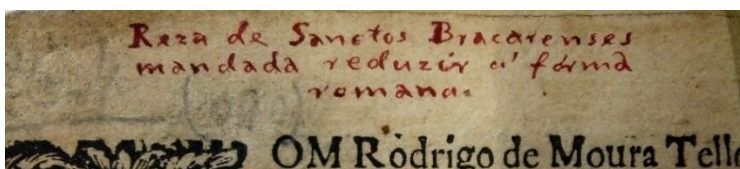 Reza de Sanctos Bracarenses
mandada reduzir á fórma
romana.
OM Rodrigo de Moura Telle